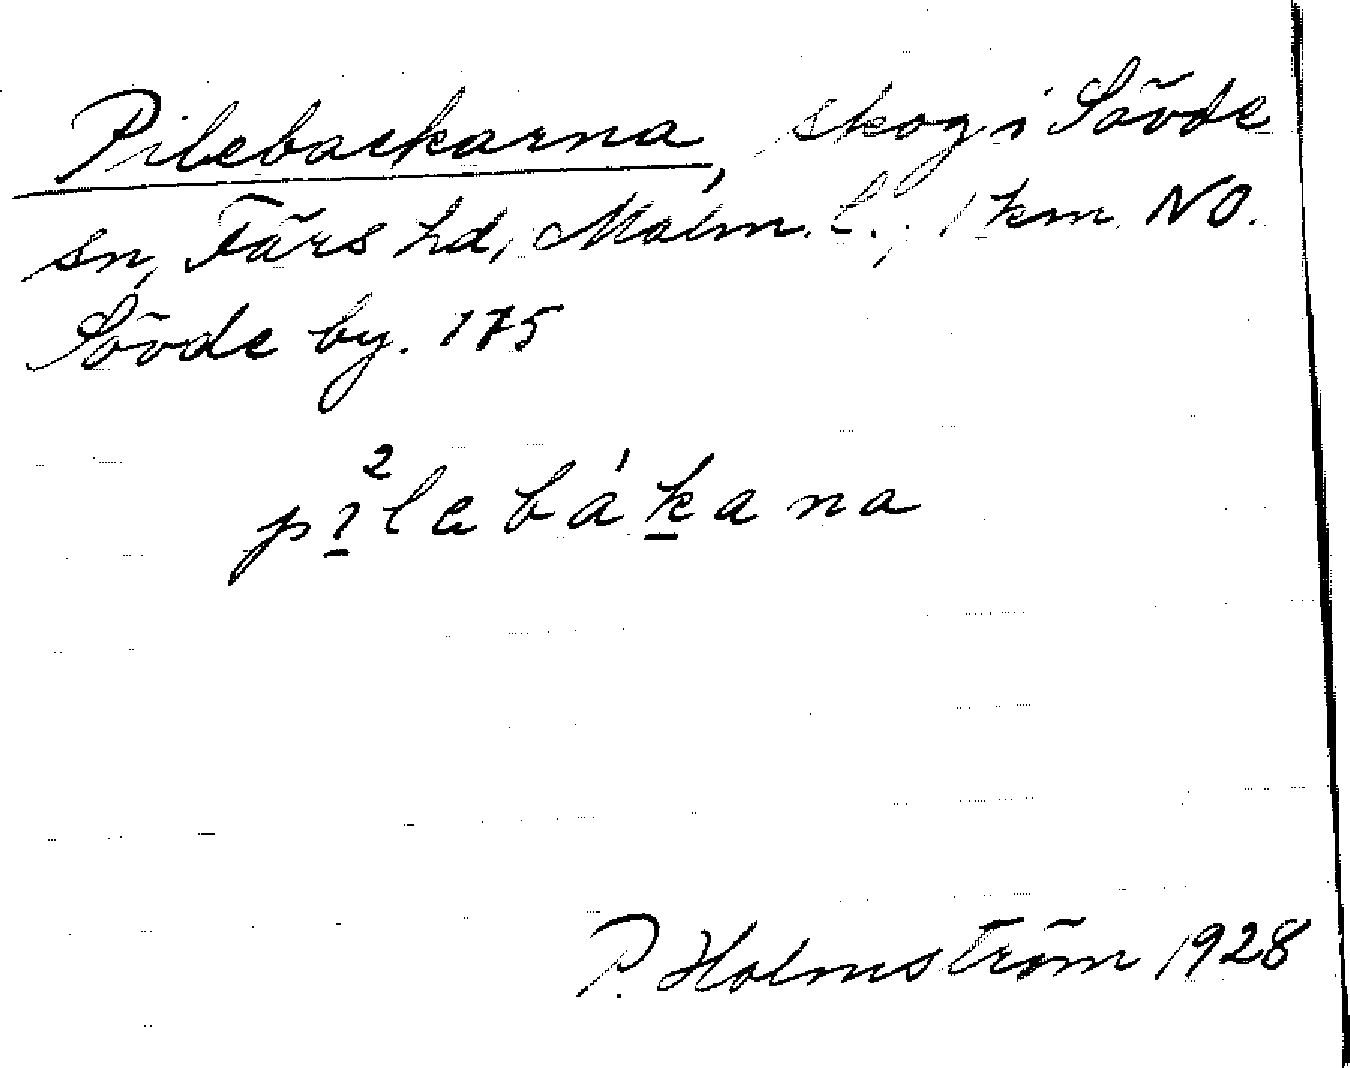 Pilebackarna, skog i Sövde
sn, Färs hd, Malm. l., 1 km NO.
Sövde by. 175
pi²lebákana
P. Holmström 1928